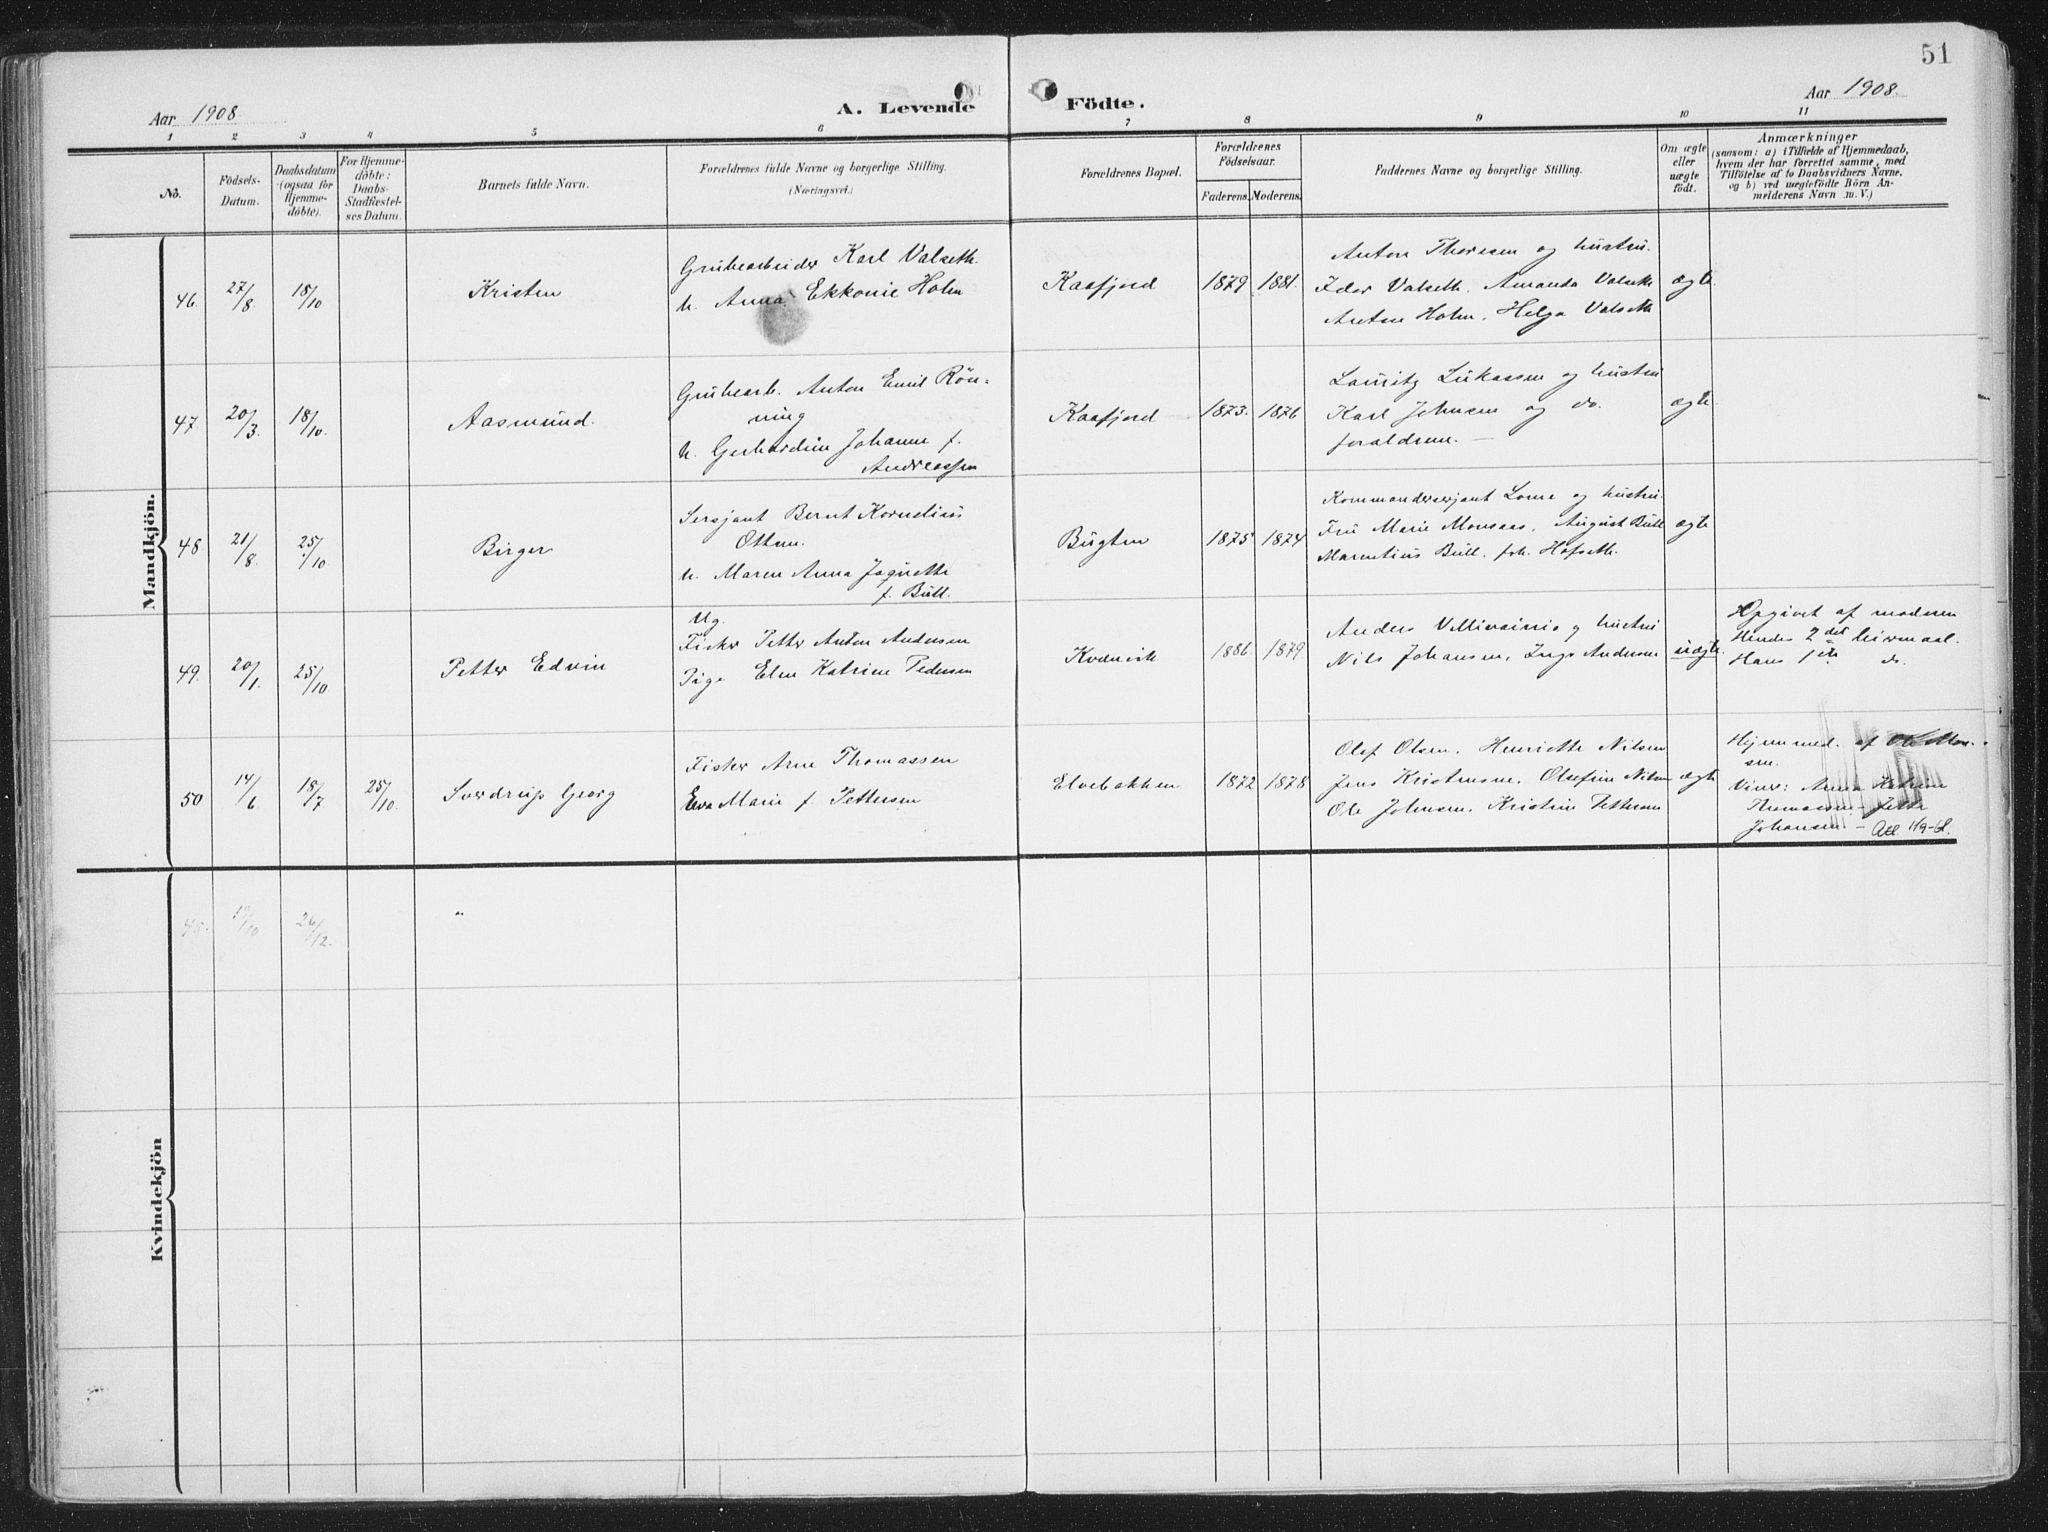 51
Aar 1908
A. Levende Födte.
Aar 1908.
1 2 3 4 5 6 7 8 9 10 11
No.
Födsels-
Datum.
Daabsdatum
(ogsaa for
Hjemme-
döbte).
For Hjemme-
döbte:
Daabs-
Stadfæstel-
ses Datum.
Barnets fulde Navn.
Forældrenes fulde Navne og borgerlige Stilling.
(Næringsvei.)
Forældrenes Bopæl.
Forældrenes
Födselsaar.
Faderens. Moderens.
Faddernes Navne og borgerlige Stilling.
Om ægte
eller
uægte
født.
Anmærkninger
(saasom: a) i Tilfælde af Hjemmedaab,
hvem der har forrettet samme, med
Tilföielse af to Daabsvidners Navne,
og b) ved uægtefödte Börn An-
melderens Navn m. V.)
Mandkjön.
46. 27/8 18/10
Kristen
Grubearbeider Karl Valseth.
h. Anna Ekkonie Holm
Kaafjord
1879 1881.
Anton Thoresen og hustru.
Peder Valseth. Amanda Valseth
Anton Holm. Helga Valseth
ægte
47. 20/3. 18/10.
Aasmund.
Grubearb. Anton Emil Røn-
ning
h. Gerhardine Johanne f.
Andreassen
Kaafjord
1873. 1876
Lauritz Lukassen og hustru
Karl Johnsen og do.
forældrene. —
ægte.
48 21/8. 25/10
Birger
Sersjant Bernt Kornelius
Ottsen.
h. Maren Anna Jaquette
f. Bull.
Bugten
1875. 1874
Kommandersersjant Lome og hustru.
Fru Marie Monsaas, August Bull
Marentius Bull. frk. Hofseth.
ægte
49. 20/1. 25/10
Petter Edvin
Ug.
Fisker Petter Anton Andersen
Pige Elen Katrine Pedersen
Kvænvik
1886. 1879
Anders Vellivainio og hustru
Nils Johansen, Inga Andersen
uægte.
Opgivet af moderen
Hendes 2det leiermaal.
Hans 1ste do.
50 14/6 18/7 25/10.
Sverdrup Georg
Fisker Arne Thomassen
Ewa Marie f. Pettersen
Elvebakken
1872 1878
Olof Olsen. Henriette Nilsen
Jens Kristensen. Olsefine Nilsen
Ole Johnsen. Kristine Pettersen
ægte
Hjemmed. af
sen.
Viner: Anna Katrine
Thomassen — Jette
Johansen. — Att. 1/9-61.
Kvindekjön
45. 19/10 26/12.
"